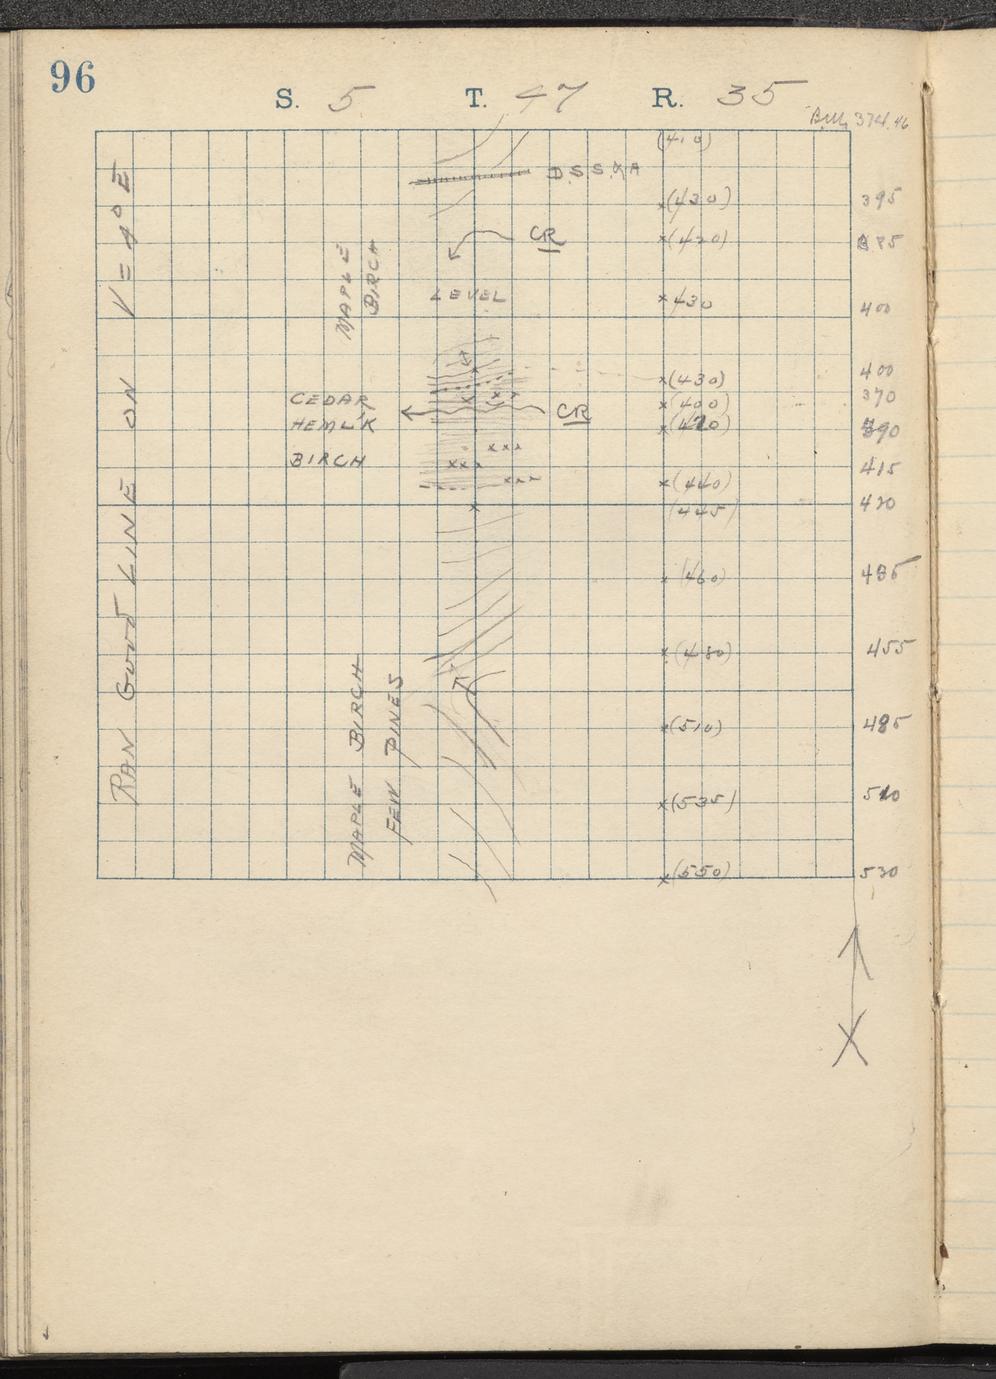 96
S. 5 T. 47 R. 35
B.M. 374.46
(410)
D.S.S.&A
(430) 395
(420) 385
CR
MAPLE
BIRCH
LEVEL
430 400
(430) 400
CEDAR (400) 370
HEML'K CR (420) 390
BIRCH 415
(440)
(445) 420
(460) 435
(480) 455
(510) 485
(535) 510
(550) 530
MAPLE BIRCH
FEW PINES
RAN GOOD LINE ON V = 4° E